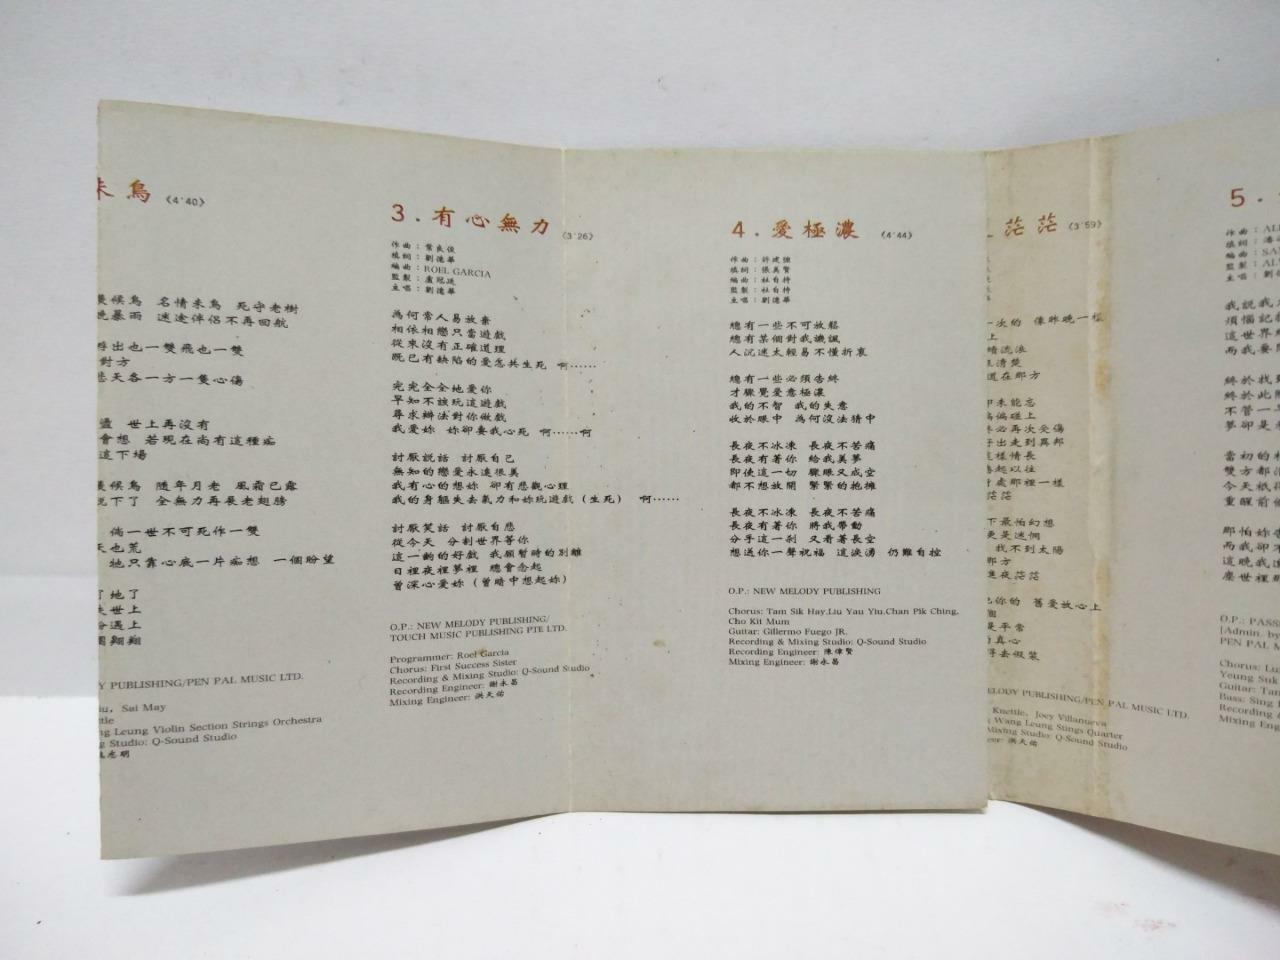 朱鳥 《4'40》
候鳥 名情朱鳥 死守老樹
暴雨 迷途伴侶不再回航
浮出也一雙飛也一雙
對方
悲天各一方一隻心傷
盡 世上再沒有
會想 若現在尚有這種痴
這下場
候鳥 隨年月老 風霜已露
說下了 全無力再展老翅膀
倘一世不可死作一雙
天也荒
牠只靠心底一片痴想 一個盼望
了地了
世上
遇上
翱翔
Y PUBLISHING/PEN PAL MUSIC LTD.
iu, Sai May
ttle
ng Leung Violin Section Strings Orchestra
g Studio: Q-Sound Studio
志明
3.有心無力《3'26》
作曲：葉良俊
填詞：劉德華
編曲：ROEL GARCIA
監製：盧冠廷
主唱：劉德華
為何常人易放棄
相依相戀只當遊戲
從來沒有正確道理
既已有缺陷的愛怎共生死 啊……
完完全全地愛你
早知不該玩這遊戲
尋求辦法對你做戲
我愛妳 妳卻要我心死 啊……啊
討厭說話 討厭自己
無知的戀愛永遠很美
我有心的想妳 卻有悲觀心理
我的身軀失去氣力和妳玩遊戲（生死） 啊……
討厭笑話 討厭自悲
從今天 分割世界等你
這一齣的好戲 我願暫時的別離
日裡夜裡夢裡 總會念起
曾深心愛妳（曾暗中想起妳）
O.P.: NEW MELODY PUBLISHING/
TOUCH MUSIC PUBLISHING PTE LTD.
Programmer: Roel Garcia
Chorus: First Success Sister
Recording & Mixing Studio: Q-Sound Studio
Recording Engineer: 謝永昌
Mixing Engineer: 洪天佑
4.愛極濃 《4'44》
作曲：許建強
填詞：張美賢
編曲：杜自持
監製：杜自持
主唱：劉德華
總有一些不可放鬆
總有某個對我譏諷
人沉迷太輕易不懂折衷
總有一些必須告終
才驟覺愛意極濃
我的不智 我的失意
收於眼中 為何沒法猜中
長夜不冰凍 長夜不苦痛
長夜有著你 給我美夢
即使這一切 驟眼又成空
都不想放開 緊緊的抱擁
長夜不冰凍 長夜不苦痛
長夜有著你 將我帶動
分手這一剎 又看著長空
想送你一聲祝福 這淚湧 仍難自控
O.P.: NEW MELODY PUBLISHING
Chorus: Tam Sik Hay,Liu Yau Yiu,Chan Pik Ching,
Cho Kit Mum
Guitar: Gillermo Fuego JR.
Recording & Mixing Studio: Q-Sound Studio
Recording Engineer: 陳偉賢
Mixing Engineer: 謝永昌
茫茫 《3'59》
一次的 像昨晚一樣
上
晴流浪
清楚
道在那方
未能忘
偏碰上
必再次受傷
出走到異邦
這樣情長
起以往
處那裡一樣
茫茫
下最怕幻想
更是迷惘
我不到太陽
那方
進夜茫茫
你的 舊愛放心上
個
是平常
真心
得去假裝
ELODY PUBLISHING/PEN PAL MUSIC LTD.
Knettle, Joey Villanueva
g Wang Leung Stings Quarter
Mixing Studio: Q-Sound Studio
eer: 洪天佑
5.
作曲：AL
填詞：潘
編曲：SA
監製：AL
主唱：劉
我說我
煩惱記
這世界
而我要
終於找到
終於此
不管一
夢卻是
當初的
雙方都
今天祇
重醒前
那怕妳
而我卻
這晚我
塵世裡
O.P.: PASS
[Admin. by
PEN PAL M
Chorus: Lu
Yeung Suk
Guitar: Tar
Bass: Sing
Recording
Mixing Eng